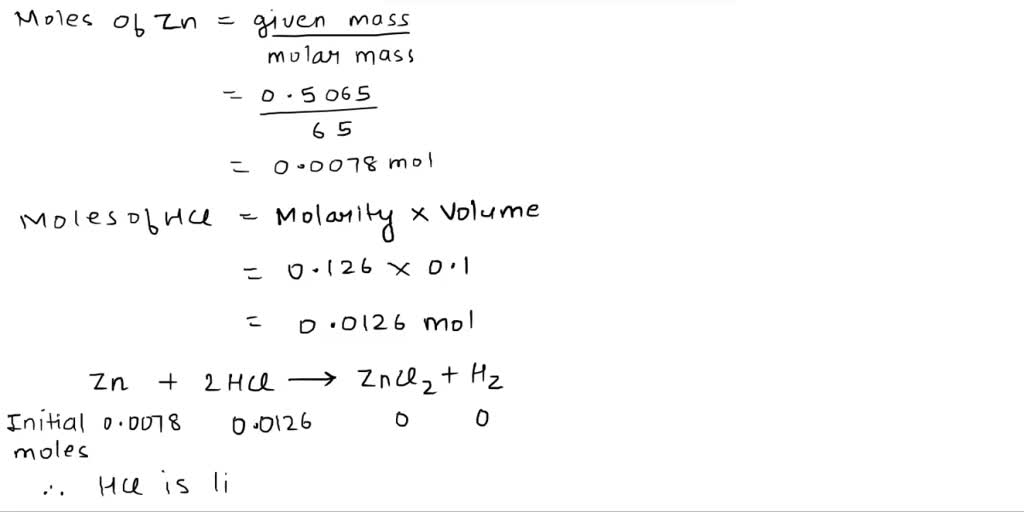 Moles of Zn = given mass
molar mass
= 0.5065
65
= 0.0078 mol
Moles of HCl = Molarity × Volume
= 0.126 × 0.1
= 0.0126 mol
Zn + 2HCl → ZnCl2 + H2
Initial 0.0078 0.0126 0 0
moles
∴ HCl is li